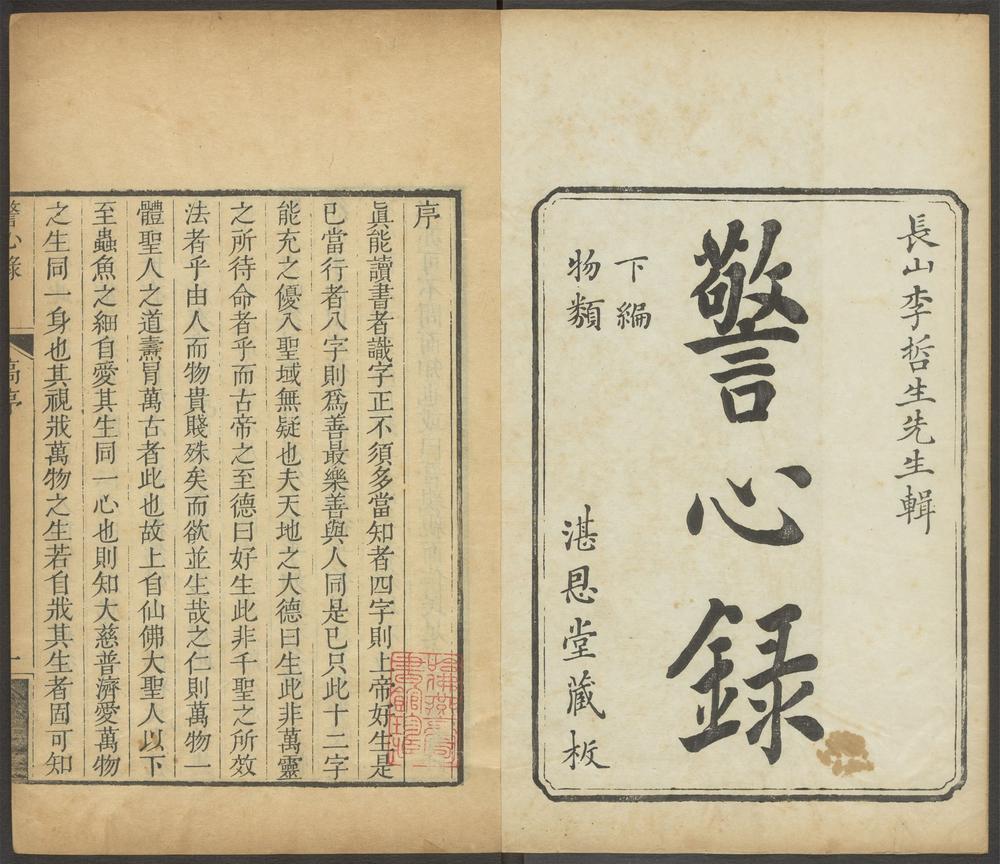 長山李哲生先生輯
警心録
下編
物類
湛恩堂藏板
序
眞能讀書者識字正不須多當知者四字則上帝好生是
已當行者八字則爲善最樂善與人同是已只此十二字
能充之優入聖域無疑也夫天地之大德曰生此非萬靈
之所待命者乎而古帝之至德曰好生此非千聖之所效
法者乎由人而物貴賤殊矣而欲並生哉之仁則萬物一
體聖人之道燾冒萬古者此也故上自仙佛大聖人以下
至蟲魚之細自愛其生同一心也則知大慈普濟愛萬物
之生同一身也其視戕萬物之生若自戕其生者固可知
警心錄
高序
一